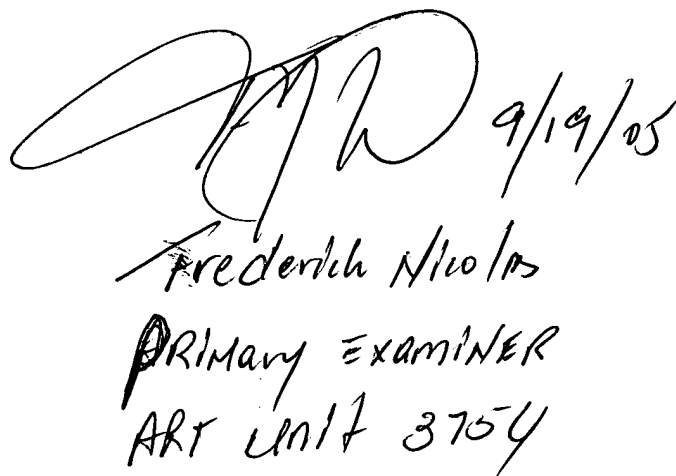 9/19/05
Frederick Nicolas
PRIMary EXAMINER
ART UNIT 3754